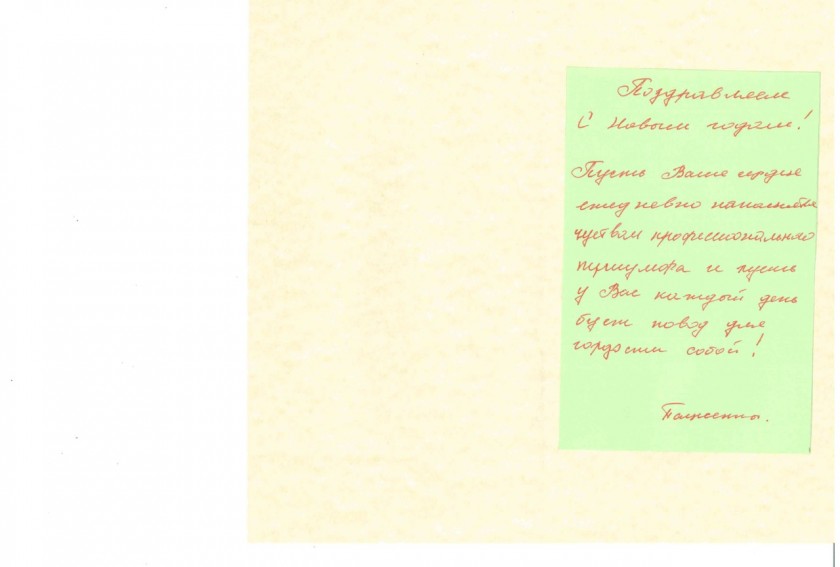 Поздравляем
С Новым годом!
Пусть Ваше сердце
ежедневно наполняется
чувством профессионального
триумфа и пусть
у Вас каждый день
будет повод для
гордости собой!